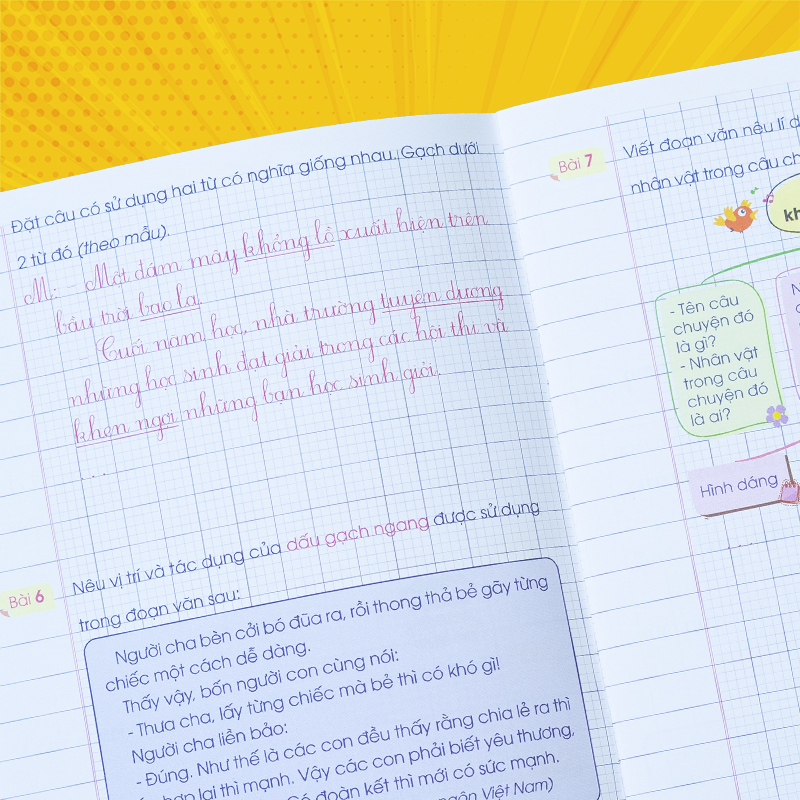 Đặt câu có sử dụng hai từ có nghĩa giống nhau. Gạch dưới
2 từ đó (theo mẫu).
M: - Một đám mây khổng lồ xuất hiện trên
bầu trời bao la.
- Cuối năm học, nhà trường tuyên dương
những học sinh đạt giải trong các hội thi và
khen ngợi những bạn học sinh giỏi.
...
Bài 6
Nêu vị trí và tác dụng của dấu gạch ngang được sử dụng
trong đoạn văn sau:
Người cha bèn cởi bó đũa ra, rồi thong thả bẻ gãy từng
chiếc một cách dễ dàng.
Thấy vậy, bốn người con cùng nói:
- Thưa cha, lấy từng chiếc mà bẻ thì có khó gì!
Người cha liền bảo:
- Đúng. Như thế là các con đều thấy rằng chia lẻ ra thì
hợp lại thì mạnh. Vậy các con phải biết yêu thương,
Có đoàn kết thì mới có sức mạnh.
ngôn Việt Nam)
Bài 7
Viết đoạn văn nêu lí d
nhân vật trong câu ch
- Tên câu
chuyện đó
là gì?
- Nhân vật
trong câu
chuyện đó
là ai?
Hình dáng
...